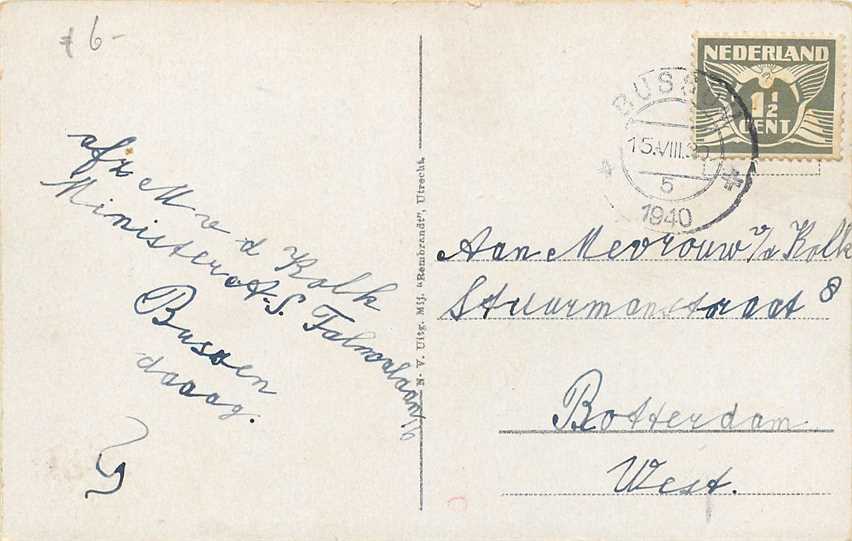 6-
afz M v d Kolk
Minister A.S. Talmalaan
Bussen
daaag.
N.V. Uitg. Mij. "Rembrandt", Utrecht.
NEDERLAND
1½
CENT
BUSSUM
15.VIII.
5
1940
Aan Mevrouw v/d Kolk
Stuurmanstraat 8
Rotterdam
West.